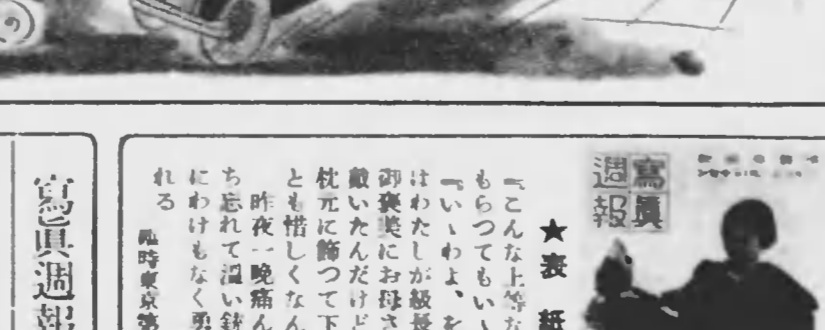 寫眞
週報
★表紙
『こんな上等な
もらつてもいゝ
『いゝわよ、を
はわたしが級長
御褒美にお母さ
戴いたんだけど
枕元に飾つて下
とも惜しくなん
昨夜一晩痛ん
ち忘れて溫い銃
にわけもなく勇
れる
臨時東京第
寫眞週報
の